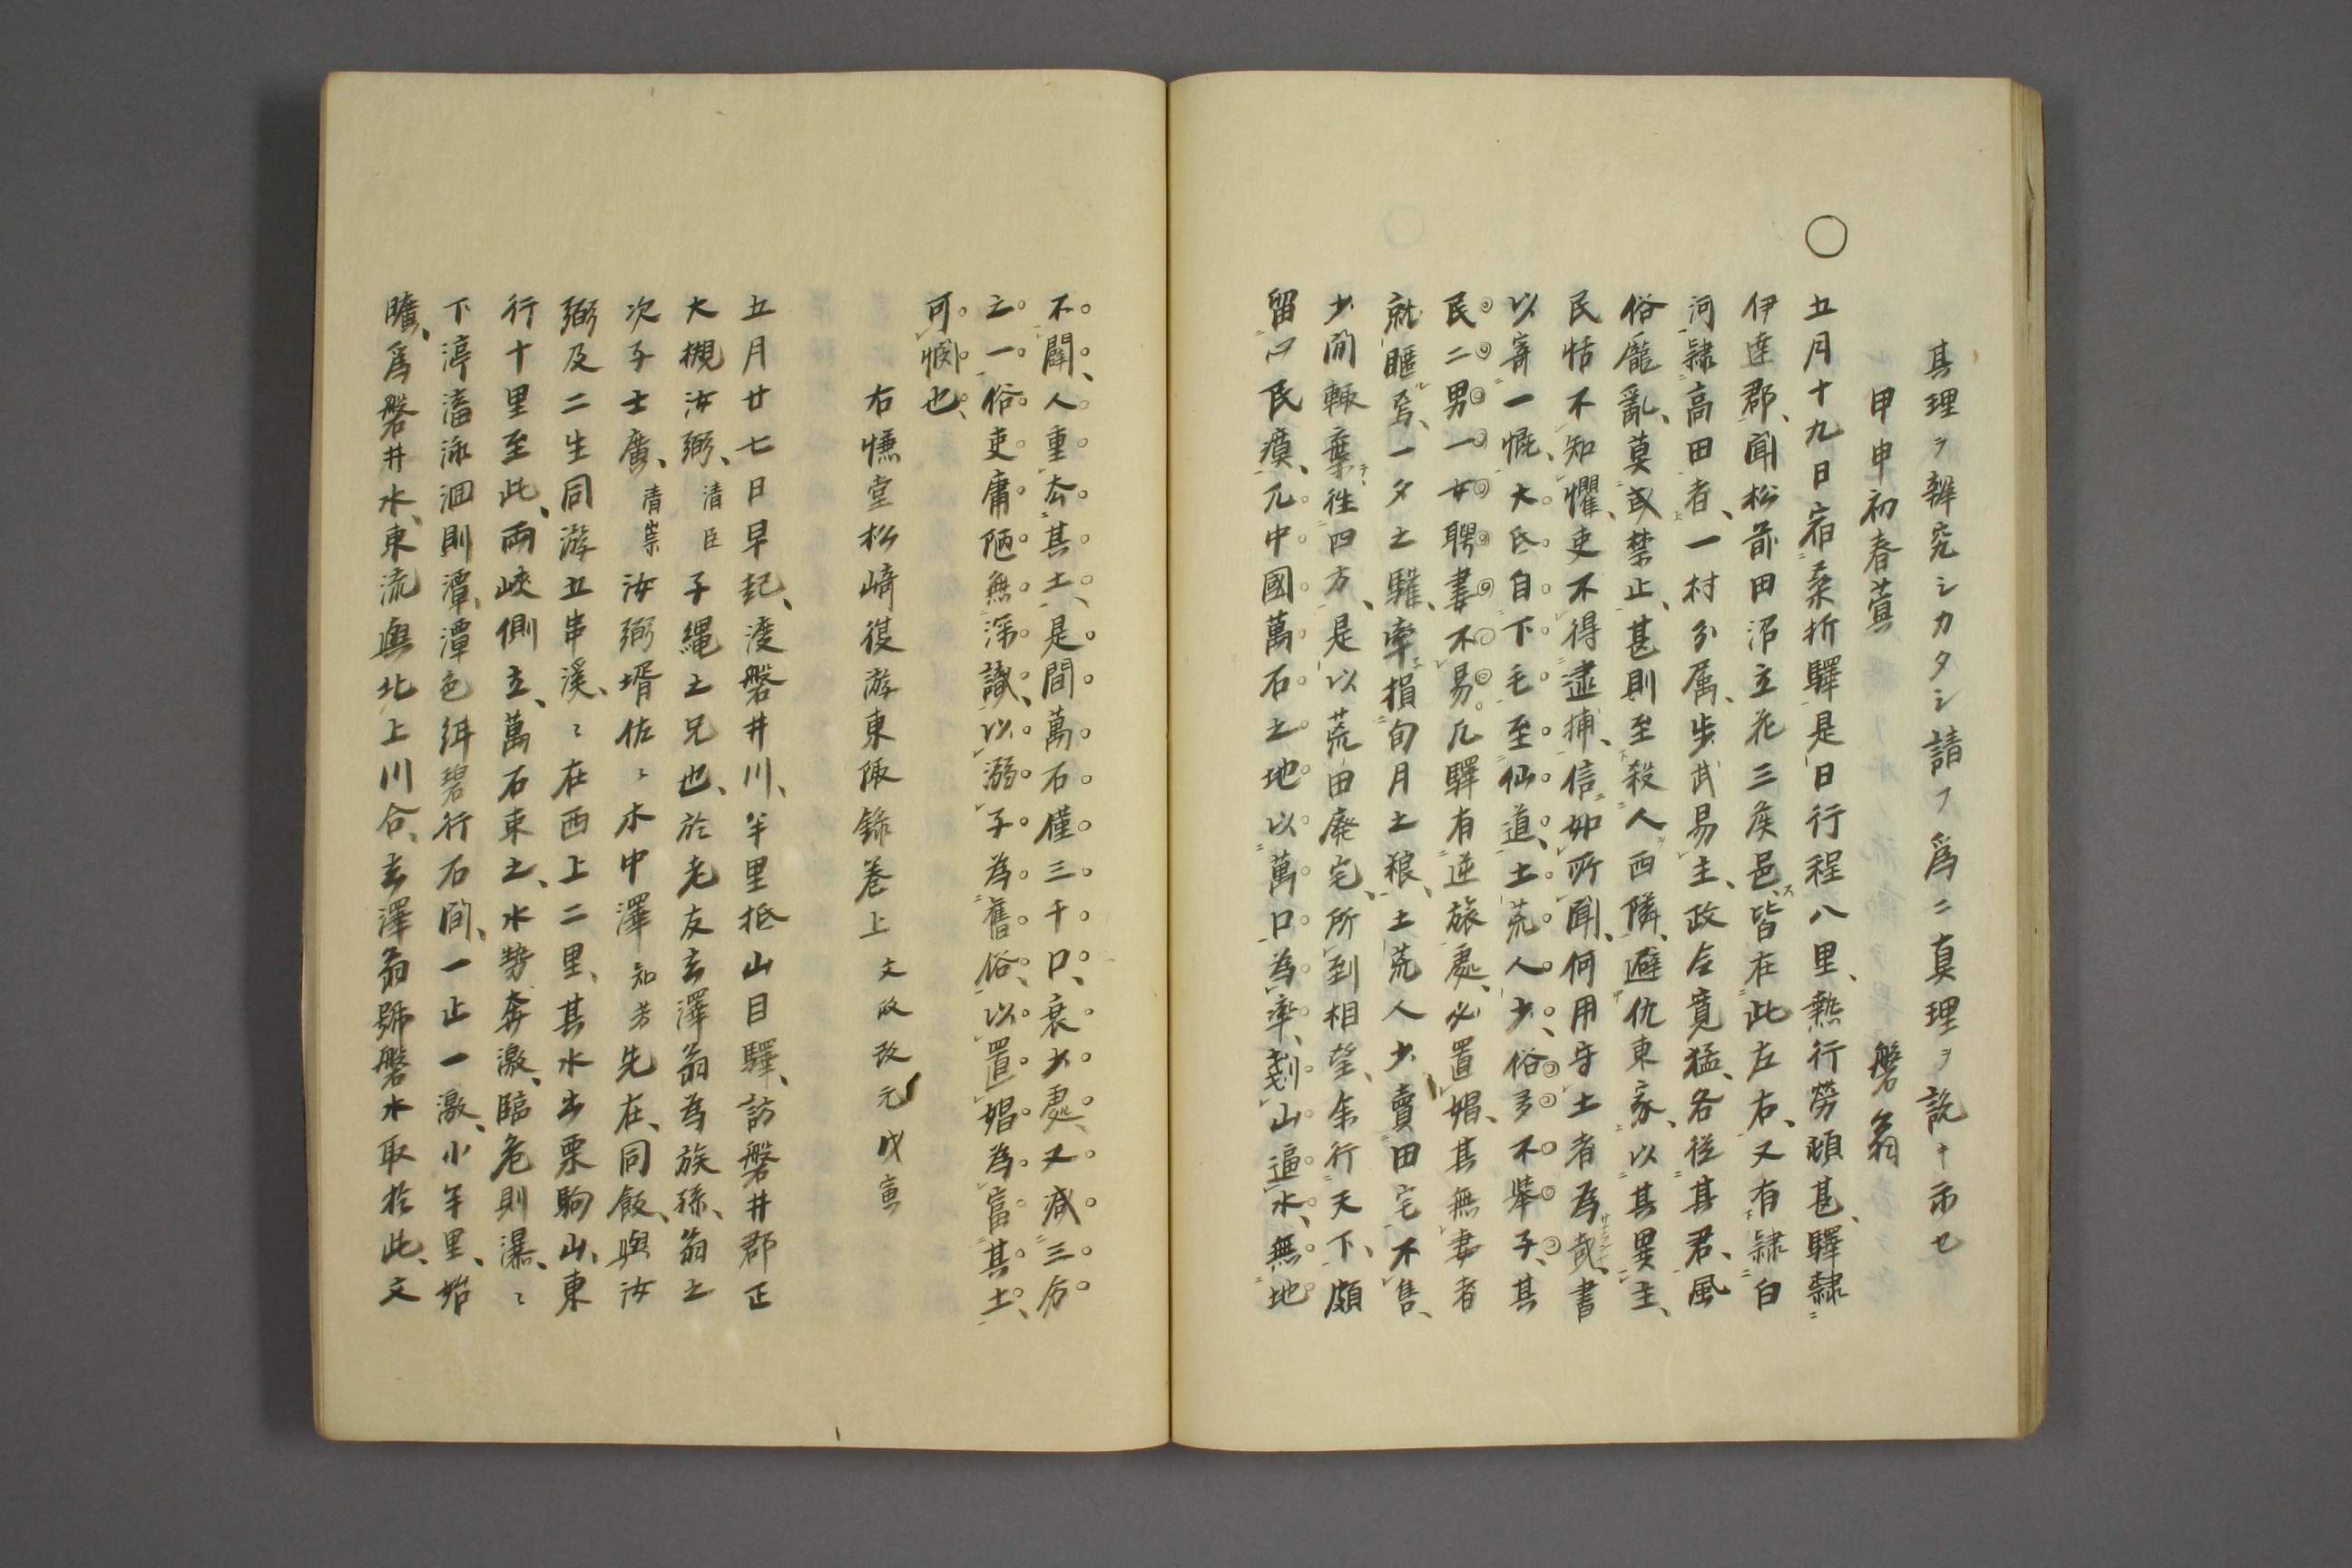 其理ヲ辨究シカタシ請フ爲ニ真理ヲ説キ示セ
甲申初春蓂　磐翁
○
五月十九日宿桑折驛是日行程八里、熱行勞頓甚、驛隸
伊達郡、聞松前田沼立花三侯邑、皆在此左右、又有隷白
河隷高田者、一村分属、歩武易主、政令寛猛、各従其君、風
俗厖亂、莫或禁止、甚則至殺人西隣、避仇東家、以其異主、
民恬不知懼、吏不得逮捕、信如所聞、何用守土者為哉、書
以寄一慨、大氐自下毛至仙道、土荒人少、俗多不挙子、其
民二男一女聘妻不易凡驛有逆旅處、必置娼、其無妻者
就暱焉、一夕之驩、牽損旬月之粮、土荒人少、賣田宅不售、
少間輙棄徃四方、是以荒田廃宅、所到相望、余行天下、頗
留心民瘼、凡中國萬石之地以萬口為率、剗山逼水、無地
不闢、人重去其土、是間萬石僅三千口、衰少處、又減三分
之一俗吏庸陋無深識、以溺子為舊俗、以置娼為富其土、
可惘也、
右慊堂松﨑復游東陬錄巻上　文政改元戊寅
五月廿七日早起、渡磐井川、半里抵山目驛、訪磐井郡正
大槻汝弼、清臣　子繩之兄也、於老友玄澤翁為族孫、翁之
次子士廣、清崇　汝弼壻佐〻木中澤　知芳　先在、同飯、與汝
弼及二生同游五串溪、〻在西上二里、其水出栗駒山、東
行十里至此、兩峽側立、萬石束之、水勢奔激、臨危則瀑、〻
下渟滀泳洄則潭、潭色紺碧行石間、一止一激、小半里、始
曠、爲磐井水、東流與北上川合、玄澤翁號磐水取於此、文